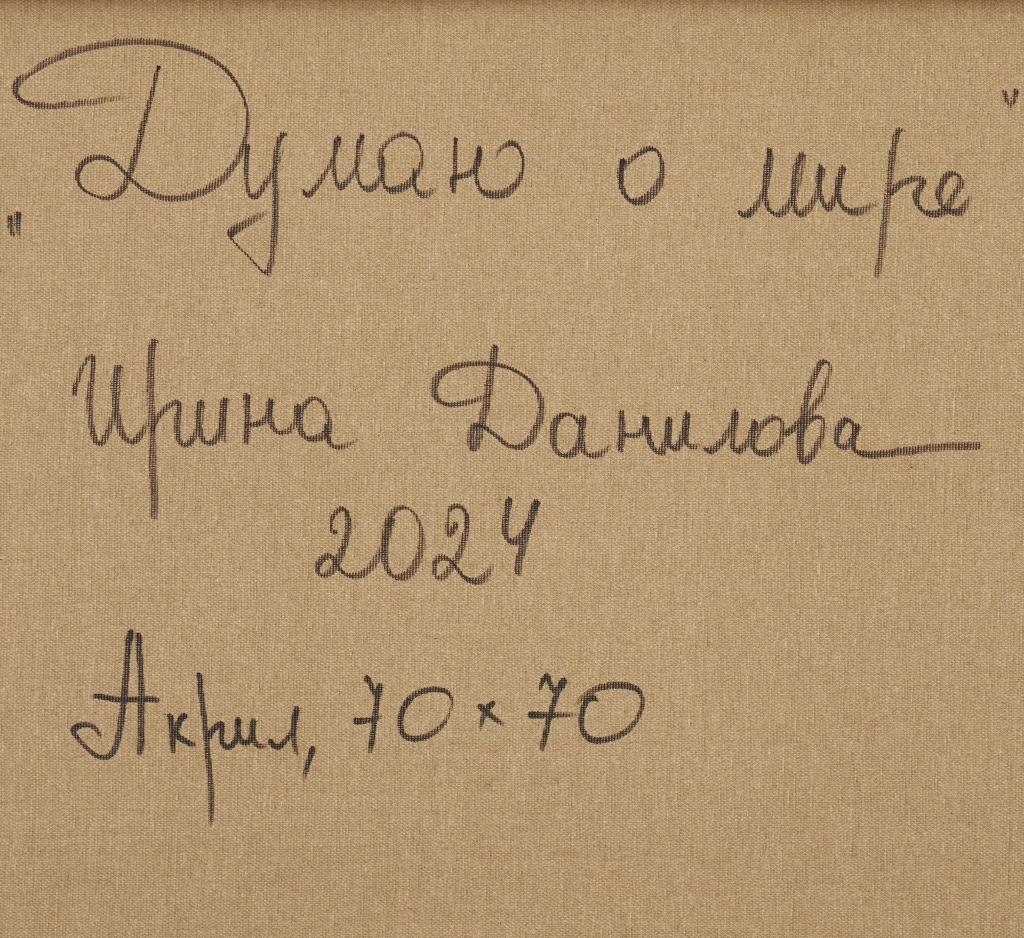 "Думаю о мире"
Ирина Данилова
2024
Акрил, 70 × 70